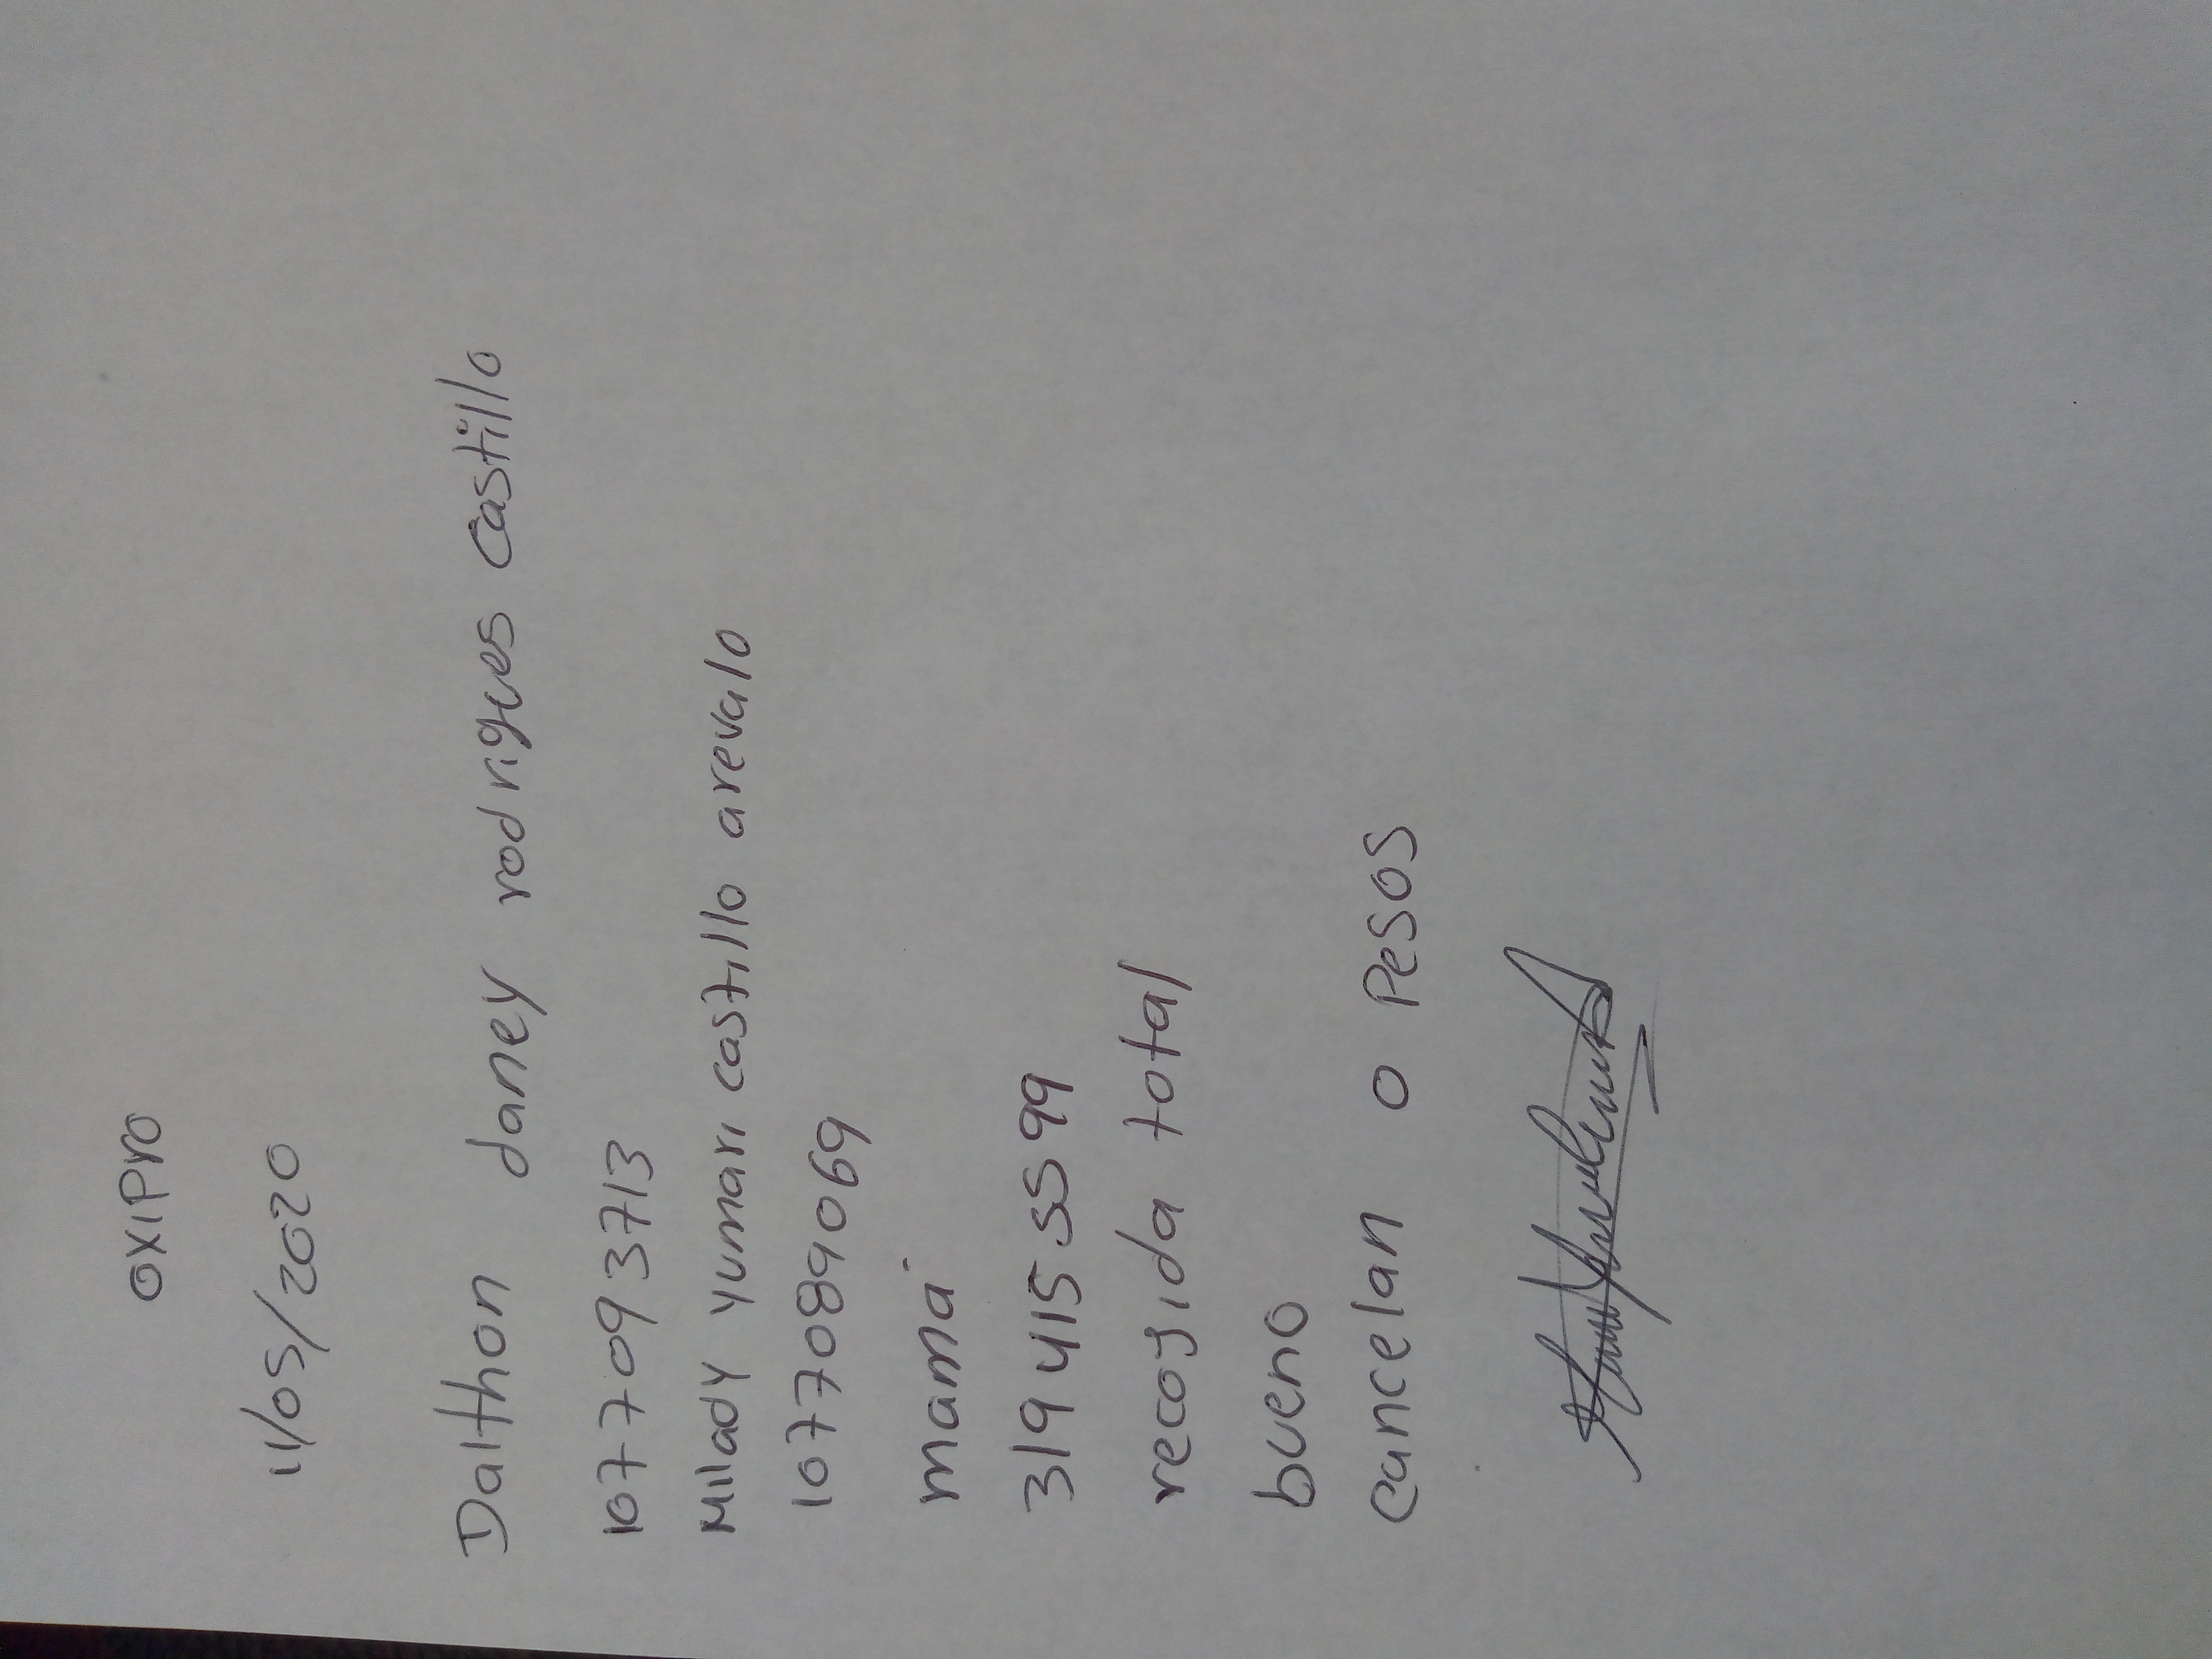 oxipro
11/05/2020
Dalthon daney rodrigues Castillo
1077093713
Milady Yumari castillo arevalo
1077089069
mamá
319 415 5599
recojida total
bueno
Cancelan 0 Pesos